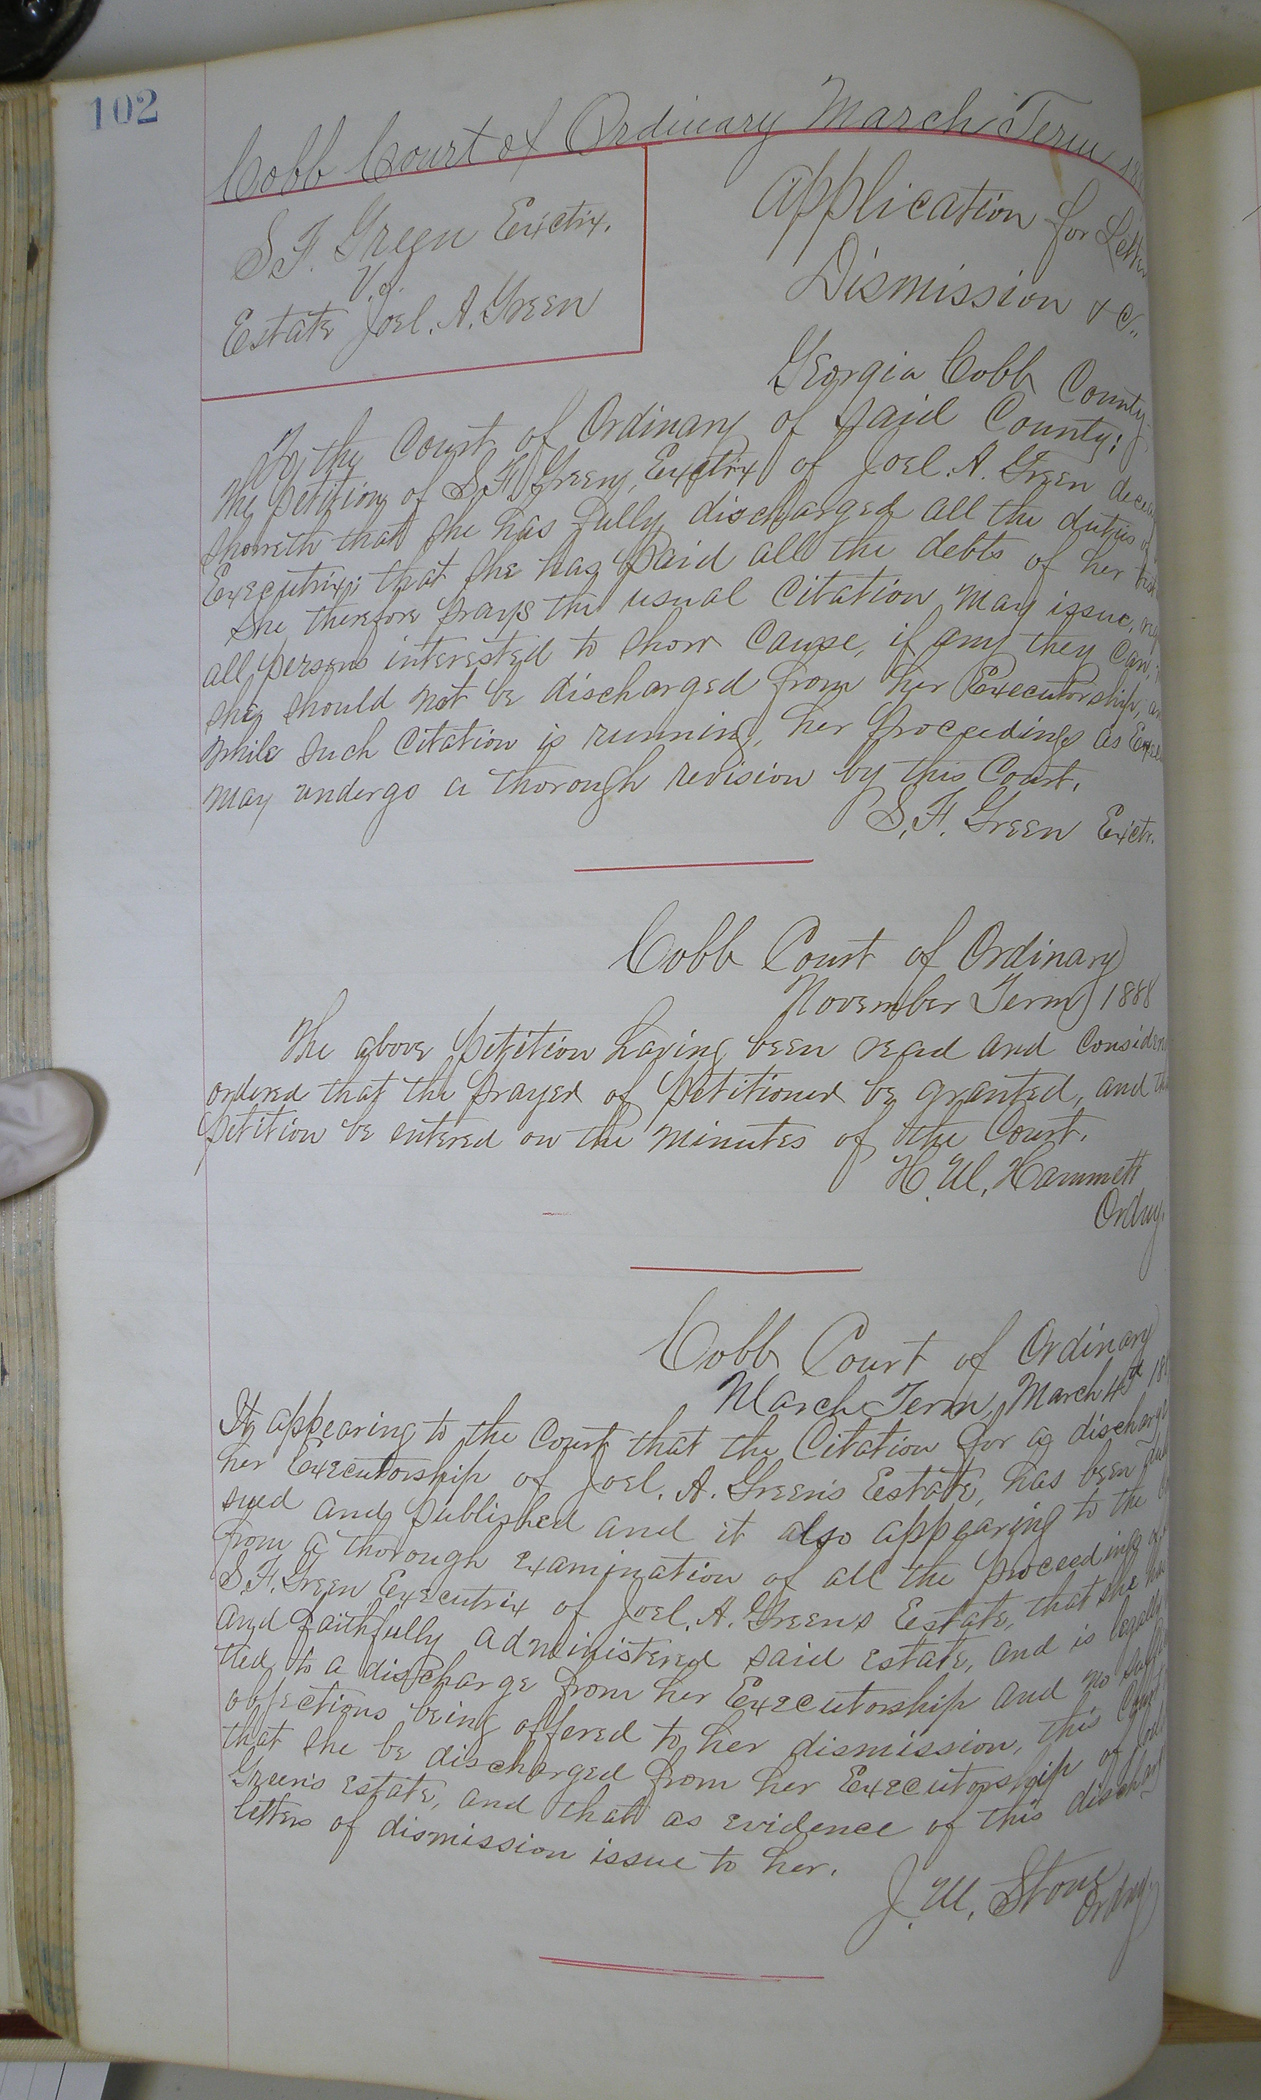 102
Cobb Court of Ordinary March Term
S. F. Green Exctrx.
Vs.
Estate Joel. A. Green
Application for
Dismission & C.
Georgia Cobb County
To the Court of Ordinary of said County:
The petition of S. F. Green, Exctrx of Joel. A. Green
Showeth that she has fully discharged all the duties
Executrix; that she has paid all the debts of her
She therefore prays the usual Citation may issue,
all persons interested to show cause, if any they can,
she should not be discharged from her Executorship,
while such Citation is running, her proceedings as
may undergo a thorough revision by this Court.
S. F. Green Exctr.
Cobb Court of Ordinary
November Term 1888
The above petition having been read and
ordered that the prayer of petitioner be granted, and
petition be entered on the minutes of the Court.
H. M. Hammett
Ordny.
Cobb Court of Ordinary
March Term, March 4th
It appearing to the Court that the Citation for a
her Executorship of Joel. A. Green's Estate, has been
sued and published and it also appearing to the
from a thorough examination of all the proceedings
S. F. Green Executrix of Joel. A. Green's Estate, that she
and faithfully administered said estate, and is legally
tled to a discharge from her Executorship and no
objections being offered to her dismission, this Court
that she be discharged from her Executorship of
Green's Estate, and that as evidence of this
letters of dismission issue to her.
J. M. Stone
Ordny